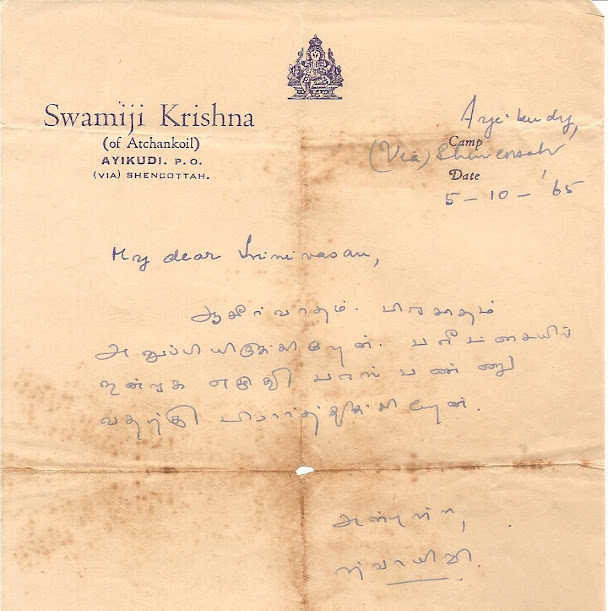 Swamiji Krishna
(of Atchankoil)
AYIKUDI. P. O.
(VIA) SHENCOTTAH.
Ayikudy,
Camp
(Via) Shencottah
Date
5-10-'65
My dear Srinivasan,
ஆசீர்வாதம். பிரசாதம்
அனுப்பியிருக்கிறேன். பரீட்சையில்
நன்றாக எழுதி பாஸ் பண்ணு
வதற்கு பிரார்த்திக்கிறேன்.
அன்புள்ள,
ஸ்வாமிஜி.